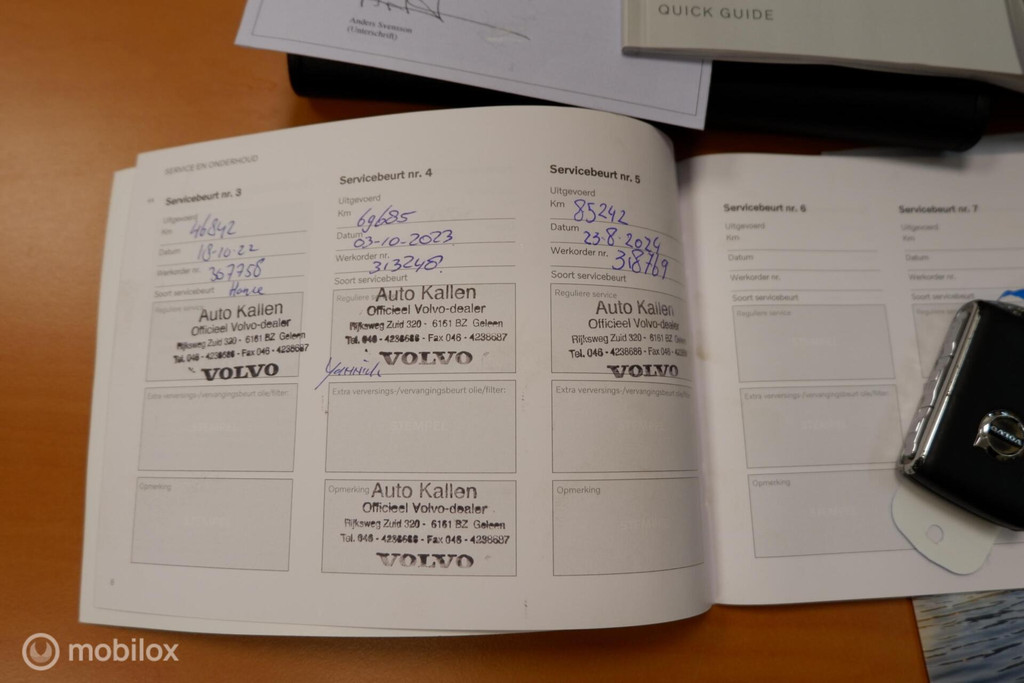 Anders Svensson
(Unterschrift)
QUICK GUIDE
SERVICE EN ONDERHOUD
Servicebeurt nr. 3
Uitgevoerd
Km 46842
Datum 18-10-22
Werkorder nr. 307758
Soort servicebeurt
Auto Kallen
Officieel Volvo-dealer
Rijksweg Zuid 320 - 6161 BZ Geleen
Tel. 046 - 4238688 - Fax 046 - 4238687
VOLVO
Extra verversings-/vervangingsbeurt olie/filter:
Opmerking
Servicebeurt nr. 4
Uitgevoerd
Km 69685
Datum 03-10-2023
Werkorder nr. 313248
Soort servicebeurt
Reguliere
Auto Kallen
Officieel Volvo-dealer
Rijksweg Zuid 320 - 6161 BZ Geleen
Tel. 046 - 4238688 - Fax 046 - 4238687
VOLVO
Yannick
Extra verversings-/vervangingsbeurt olie/filter:
Opmerking
Auto Kallen
Officieel Volvo-dealer
Rijksweg Zuid 320 - 6161 BZ Geleen
Tel. 046 - 4238688 - Fax 046 - 4238687
VOLVO
Servicebeurt nr. 5
Uitgevoerd
Km 85242
Datum 23-8-2024
Werkorder nr. 318769
Soort servicebeurt
Reguliere service
Auto Kallen
Officieel Volvo-dealer
Rijksweg Zuid 320 - 6161 BZ Geleen
Tel. 046 - 4238688 - Fax 046 - 4238687
VOLVO
Extra verversings-/vervangingsbeurt olie/filter:
Opmerking
Servicebeurt nr. 6
Uitgevoerd
Km
Datum
Werkorder nr.
Soort servicebeurt
Reguliere service
Extra verversings-/vervangingsbeurt olie/filter:
Opmerking
Servicebeurt nr. 7
Uitgevoerd
Km
Datum
Werkorder nr.
Soort servicebeurt
Reguliere
VOLVO
mobilox